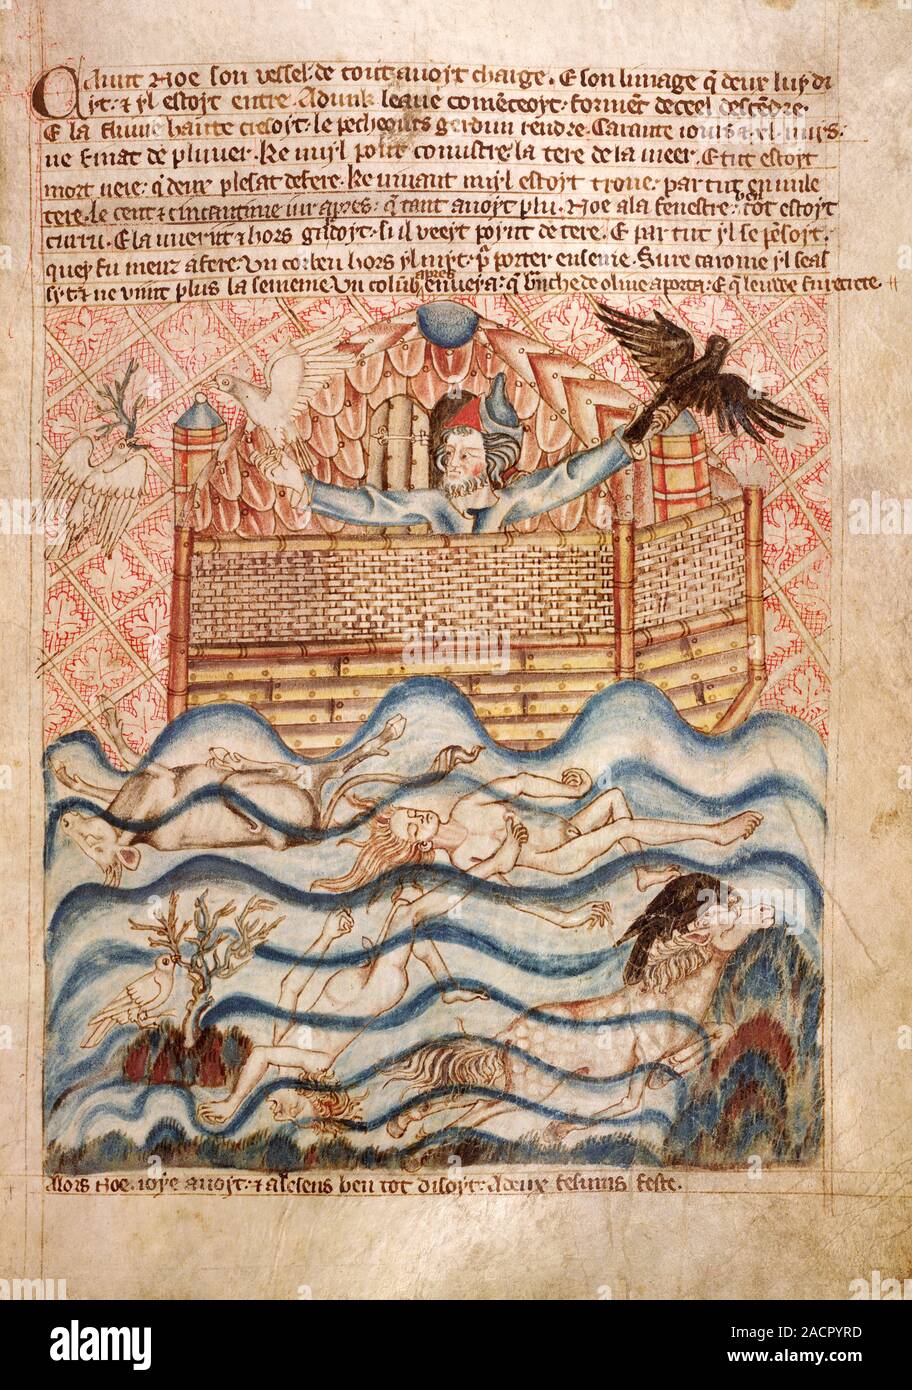 Quant Noe son vessel de tout avoyt charge. E son linage q̃ deux luy di
yt. & yl estoyt entre. Adunk leaue comẽceoyt. formẽt de ceel descẽdre.
E la fluuie haute cresoyt. le pecheours gerdun rendre. Caraunte iours &
ne finat de pluuer. Ke nuyl poĩt conustre la tere de la meer. E tut estoyt
mort veie. q̃ deux plesat defere. Ke viuant nuyl estoyt troue. par tut en vile
tere. le cent & cincantime iur apres. q̃ tant auoyt plu. Noe a la fenestre tot estoyt
curru. E la uuerit & hors gardoyt. si il veeyt poynt de tere. E par tut yl se pẽsoyt.
quey fu meuz a fere. Un corbeu hors yl myt. p̃ porter enseine. Sure caroine yl seal
syt. & ne vint plus la semeine. Un colub apres enueia. q̃ brãche de oliue aporta. E q̃
Alors Noe ioye auoyt. & a se sens ben tot disoyt. A deux fesums feste.
alamy
Image ID: 2ACPYRD
www.alamy.com